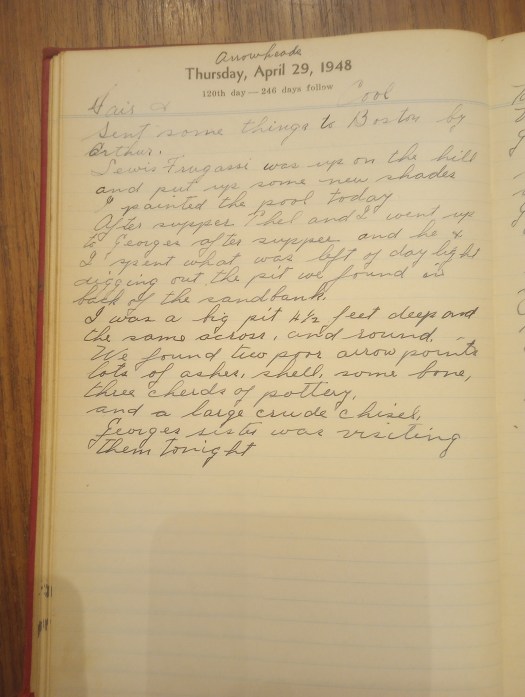 Arrowheads
Thursday, April 29, 1948
120th day — 246 days follow
Fair & Cool
Sent some things to Boston by
Arthur.
Lewis Frugassi was up on the hill
and put up some new shades
I painted the pool today
After supper Phel and I went up
to Georges after supper and he &
I spent what was left of day light
digging out the pit we found in
back of the sandbank.
I was a big pit 4½ feet deep and
the same across, and round.
We found two poor arrow points
lots of ashes, shell, some bone,
three cherds of pottery,
and a large crude chisel,
Georges sister was visiting
them tonight